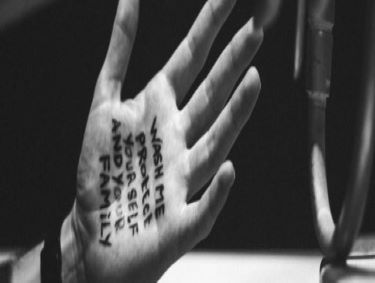 WASH ME
PROTECT
YOURSELF
AND YOUR
FAMILY